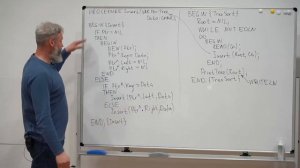 PROCEDURE Insert(VAR Ptr: Tree;
Data: CHAR);
BEGIN {Insert}
IF Ptr = NIL
THEN
BEGIN
NEW(Ptr);
Ptr^.Key := Data;
Ptr^.Left := NIL;
Ptr^.Right := NIL
END
ELSE
IF Ptr^.Key > Data
THEN
Insert(Ptr^.Left, Data)
ELSE
Insert(Ptr^.Right, Data)
END; {Insert}
BEGIN {TreeSort}
Root := NIL;
WHILE NOT EOLN
DO
BEGIN
READ(Ch);
Insert(Root, Ch)
END;
PrintTree(Root);
WRITELN
END. {TreeSort}